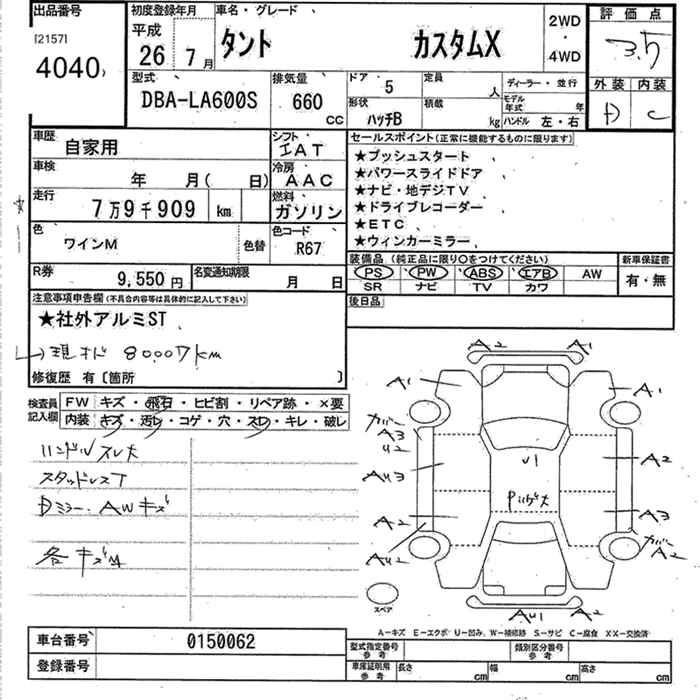 出品番号 初度登録年月 車名・グレード
[2157] 平成 2WD 評価点
4040 26 年 7月 タント カスタムX ・ 3.5
4WD
型式 排気量 ドア 5 定員 人 ディーラー・並行 外装 内装
DBA-LA600S 660 cc 形状 ハッチB 積載 kg モデル年式 年 D C
ハンドル 左・右
車歴 自家用 シフト IAT セールスポイント(正常に機能するものに限ります)
車検 年 月( 日) 冷房 AAC ★プッシュスタート
★パワースライドドア
走行 7万9千909 km 燃料 ガソリン ★ナビ・地デジTV
★ドライブレコーダー
色 ワインM 色替 色コード R67 ★ETC
★ウィンカーミラー
R券 9,550円 名変通知期限 月 日 装備品(純正品に限り○をつけてください) 新車保証書
PS PW ABS エアB AW 有・無
SR ナビ TV カワ
注意事項申告欄(不具合内容等は具体的に記入して下さい) 後日品
★社外アルミST
80007km
修復歴 有〔箇所 〕
検査員記入欄 FW キズ・飛石・ヒビ割・リペア跡・×要
内装 キズ・汚レ・コゲ・穴・スレ・キレ・破レ
ハンドルスレ大
スタッドレスT
Dミラー、AWキズ
各キズM
A2 A1
A1 A1
カバー
A3
U2
U1 A2
AU3
A2 A3
カバー
A2
AU2
スペア
AU1 A2
A-キズ E-エクボ U-凹み、W-補修跡 S-サビ C-腐食 XX-交換済
車台番号 0150062 型式指定番号 参考 類別区分番号 参考
登録番号 車庫証明用 参考 長さ cm 幅 cm 高さ cm